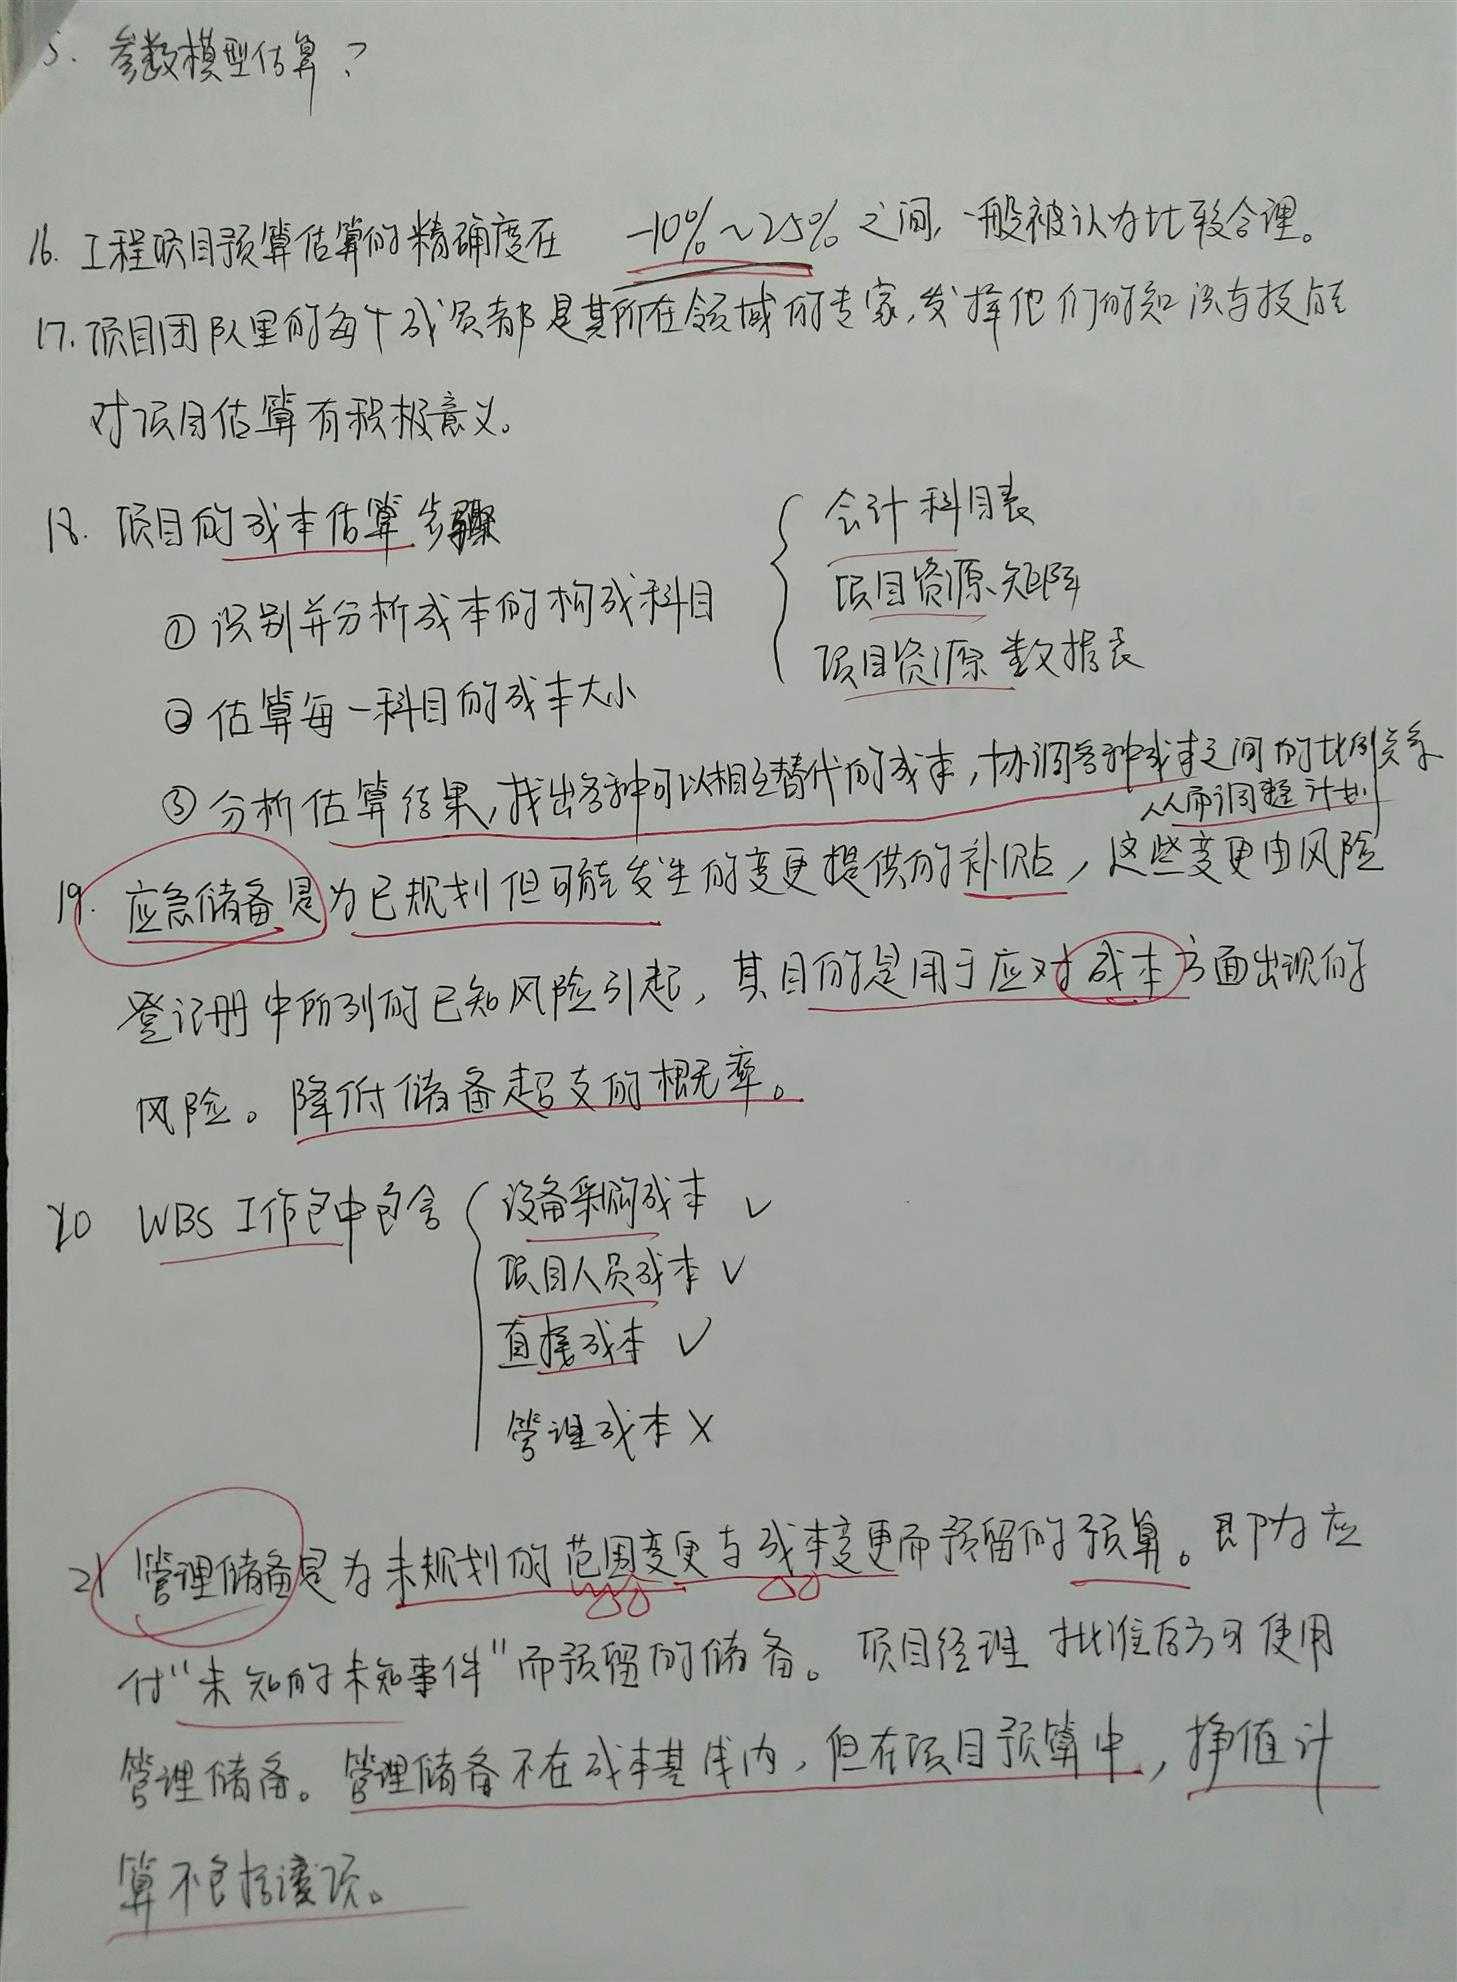 5. 参数模型估算?
16. 工程项目预算估算的精确度在 -10%~25% 之间, 一般被认为比较合理。
17. 项目团队里的每个成员都是其所在领域的专家,发挥他们的知识与技能
对项目估算有积极意义。
18. 项目的成本估算步骤
会计科目表
①识别并分析成本的构成科目
项目资源矩阵
项目资源数据表
②估算每一科目的成本大小
③分析估算结果,找出各种可以相互替代的成本,协调各种成本之间的比例关系
从而调整计划
19. 应急储备是为已规划但可能发生的变更提供的补贴,这些变更由风险
登记册中所列的已知风险引起,其目的是用于应对成本方面出现的
风险。降低储备超支的概率。
20 WBS 工作包中包含
设备采购成本 ✓
项目人员成本 ✓
直接成本 ✓
管理成本 X
21 管理储备是为未规划的范围变更与成本变更而预留的预算。即为应
付“未知的未知事件”而预留的储备。项目经理 批准后方可使用
管理储备。管理储备不在成本基线内,但在项目预算中,挣值计
算不包括该项。